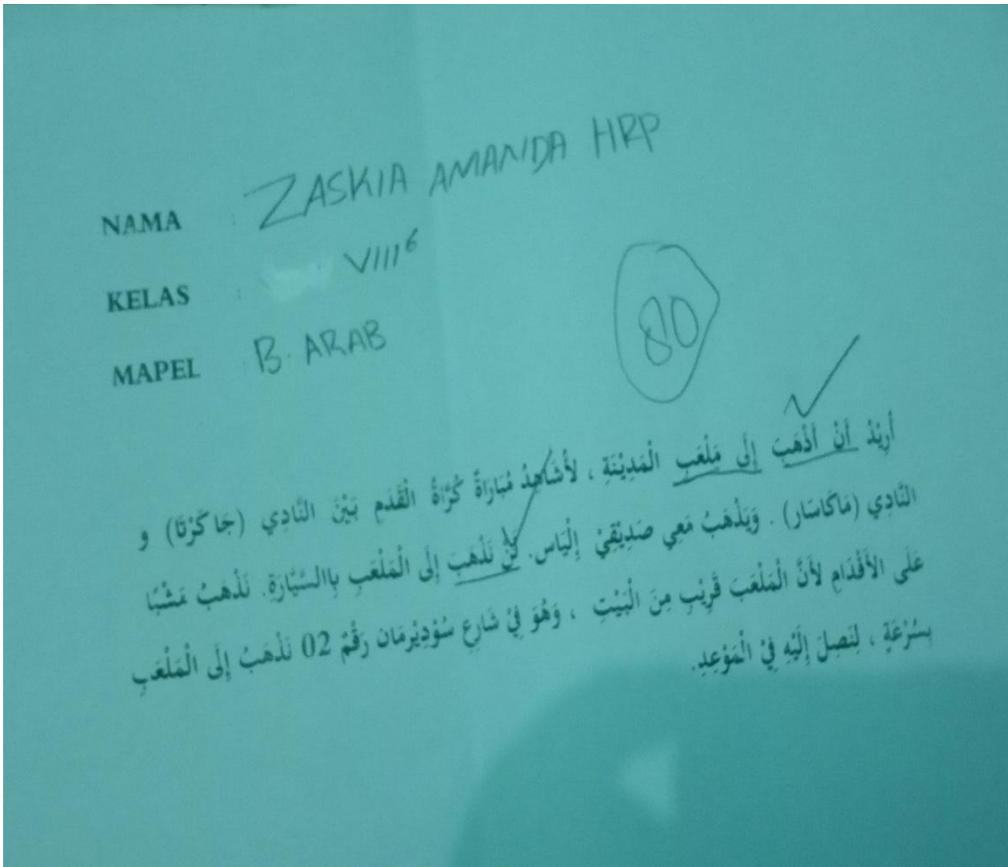 NAMA : ZASKIA AMANDA HRP
KELAS : VIII⁶
MAPEL : B. ARAB
80
أُرِيْدُ أَنْ أَذْهَبَ إِلَى مَلْعَبِ الْمَدِيْنَةِ ، لأُشَاهِدُ مُبَارَاةً كُرَّاةُ الْقَدَمِ بَيْنَ النَّادِي (جَاكَرْتَا) و
النَّادِي (مَاكَاسَار) . وَيَذْهَبُ مَعِي صَدِيْقِيْ إِلْيَاس. لَنْ نَذْهَبَ إِلَى الْمَلْعَبِ بِاالسَّيَّارَةِ. نَذْهَبُ مَشْيًا
عَلَى الأَقْدَامِ لأَنَّ الْمَلْعَبَ قَرِيْبِ مِنَ الْبَيْتِ ، وَهُوَ فِيْ شَارِعِ سُوْدِيْرمَان رَقْمْ 02 نَذْهَبُ إِلَى الْمَلْعَبِ
بِسُرْعَةٍ ، لِنَصِلَ إِلَيْهِ فِيْ الْمَوْعِدِ.